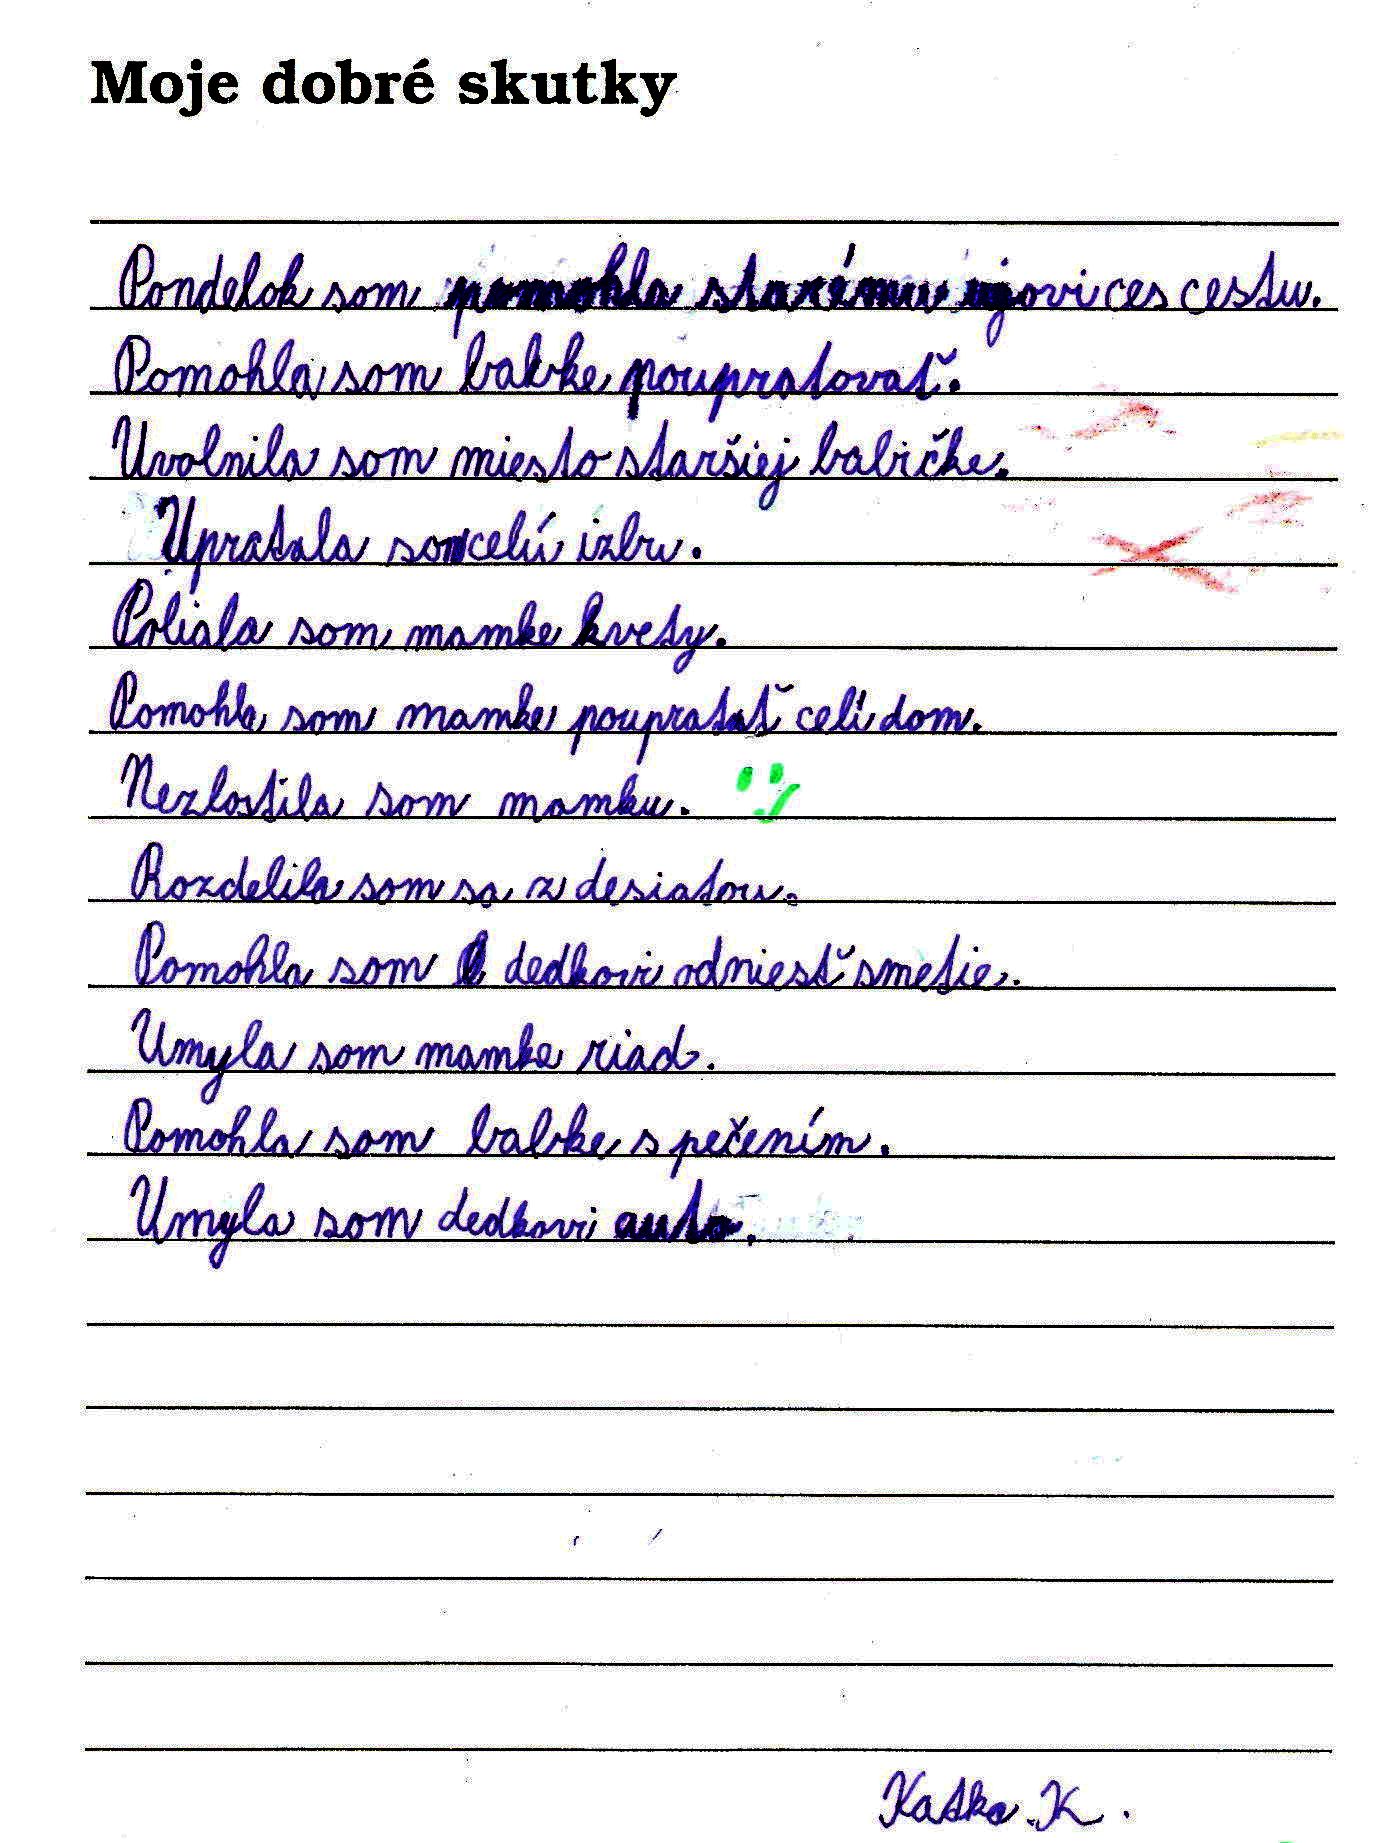 Moje dobré skutky
Pondelok som pomohla starému ujovi ces cestu.
Pomohla som babke poupratovať.
Uvolnila som miesto staršiej babičke.
Upratala som celú izbu.
Poliala som mamke kvety.
Pomohla som mamke poupratať celí dom.
Nezlostila som mamku.
Rozdelila som sa z desiatou.
Pomohla som dedkovi odniesť smetie.
Umyla som mamke riad.
Pomohla som babke s pečením.
Umyla som dedkovi auto.
Katka K.